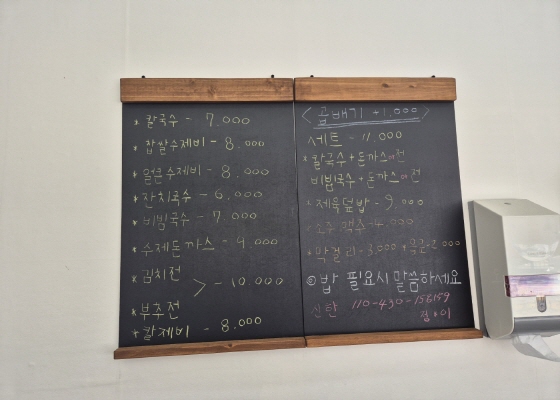 * 칼국수 - 7,000
* 찹쌀수제비 - 8,000
* 얼큰수제비 - 8,000
* 잔치국수 - 6,000
* 비빔국수 - 7,000
* 수제돈까스 - 9,000
* 김치전
> - 10,000
* 부추전
* 칼제비 - 8,000
< 곱배기 +1,000 >
세트 - 11,000
* 칼국수 + 돈까스or전
비빔국수 + 돈까스or전
* 제육덮밥 - 9,000
* 소주 맥주 - 4,000
* 막걸리 - 3,000
◎ 밥 필요시 말씀하세요
신한 110-430-156159